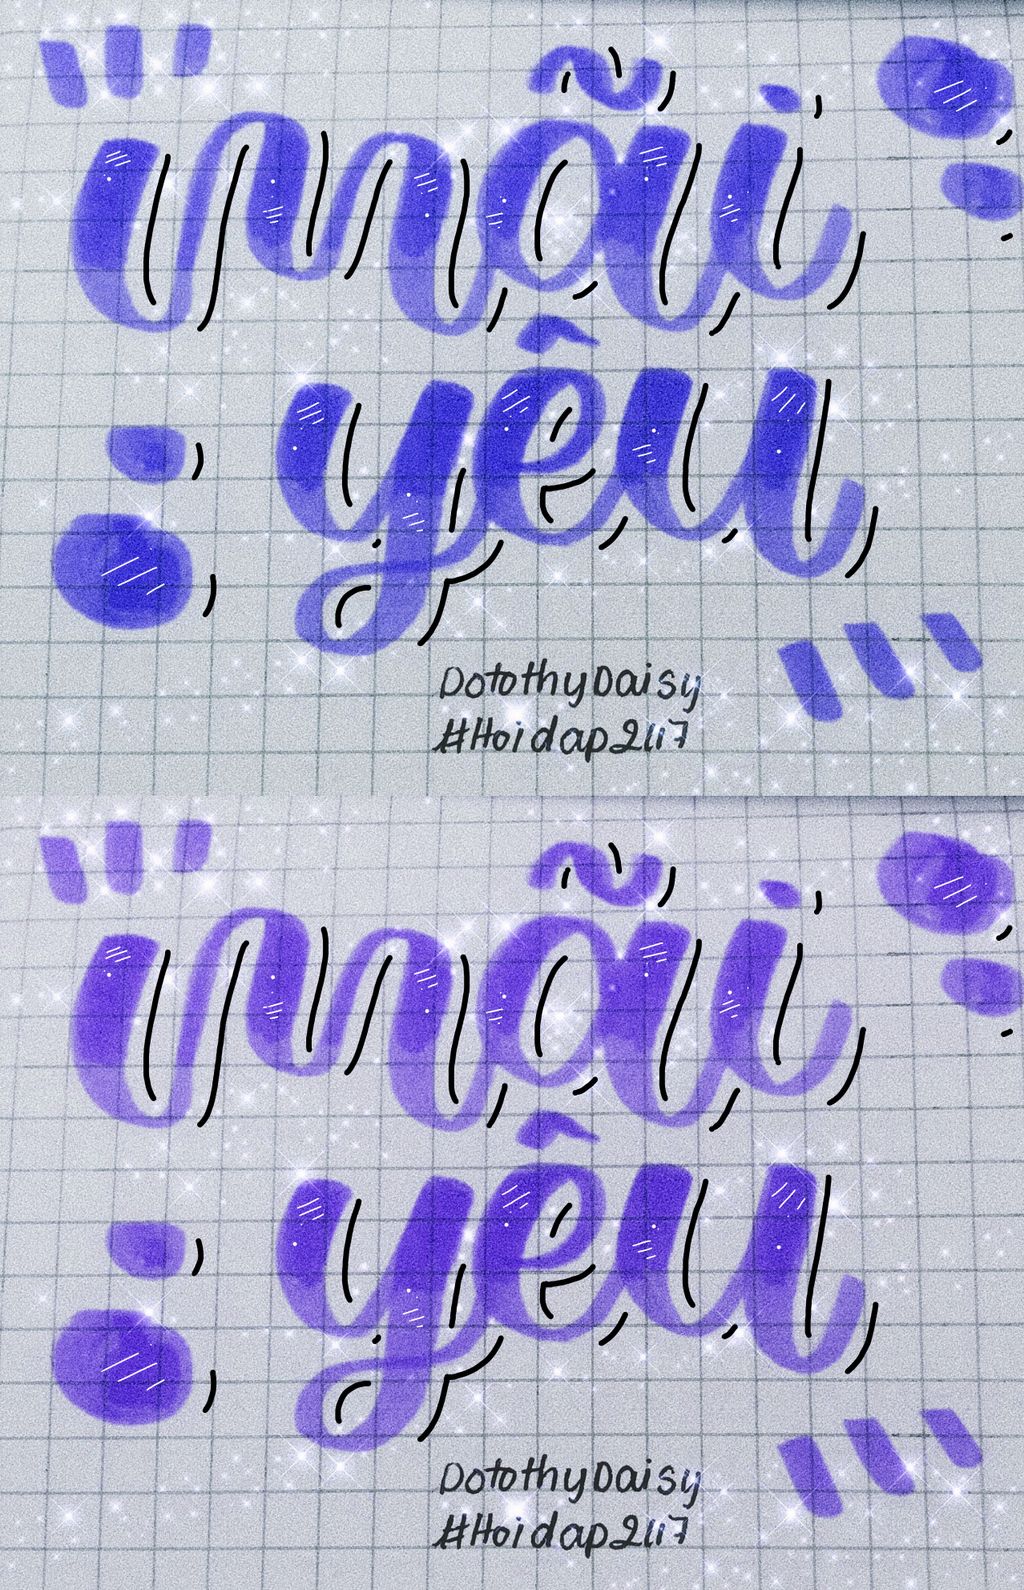 mãi
yêu
DotothyDaisy
#Hoidap247
mãi
yêu
DotothyDaisy
#Hoidap247